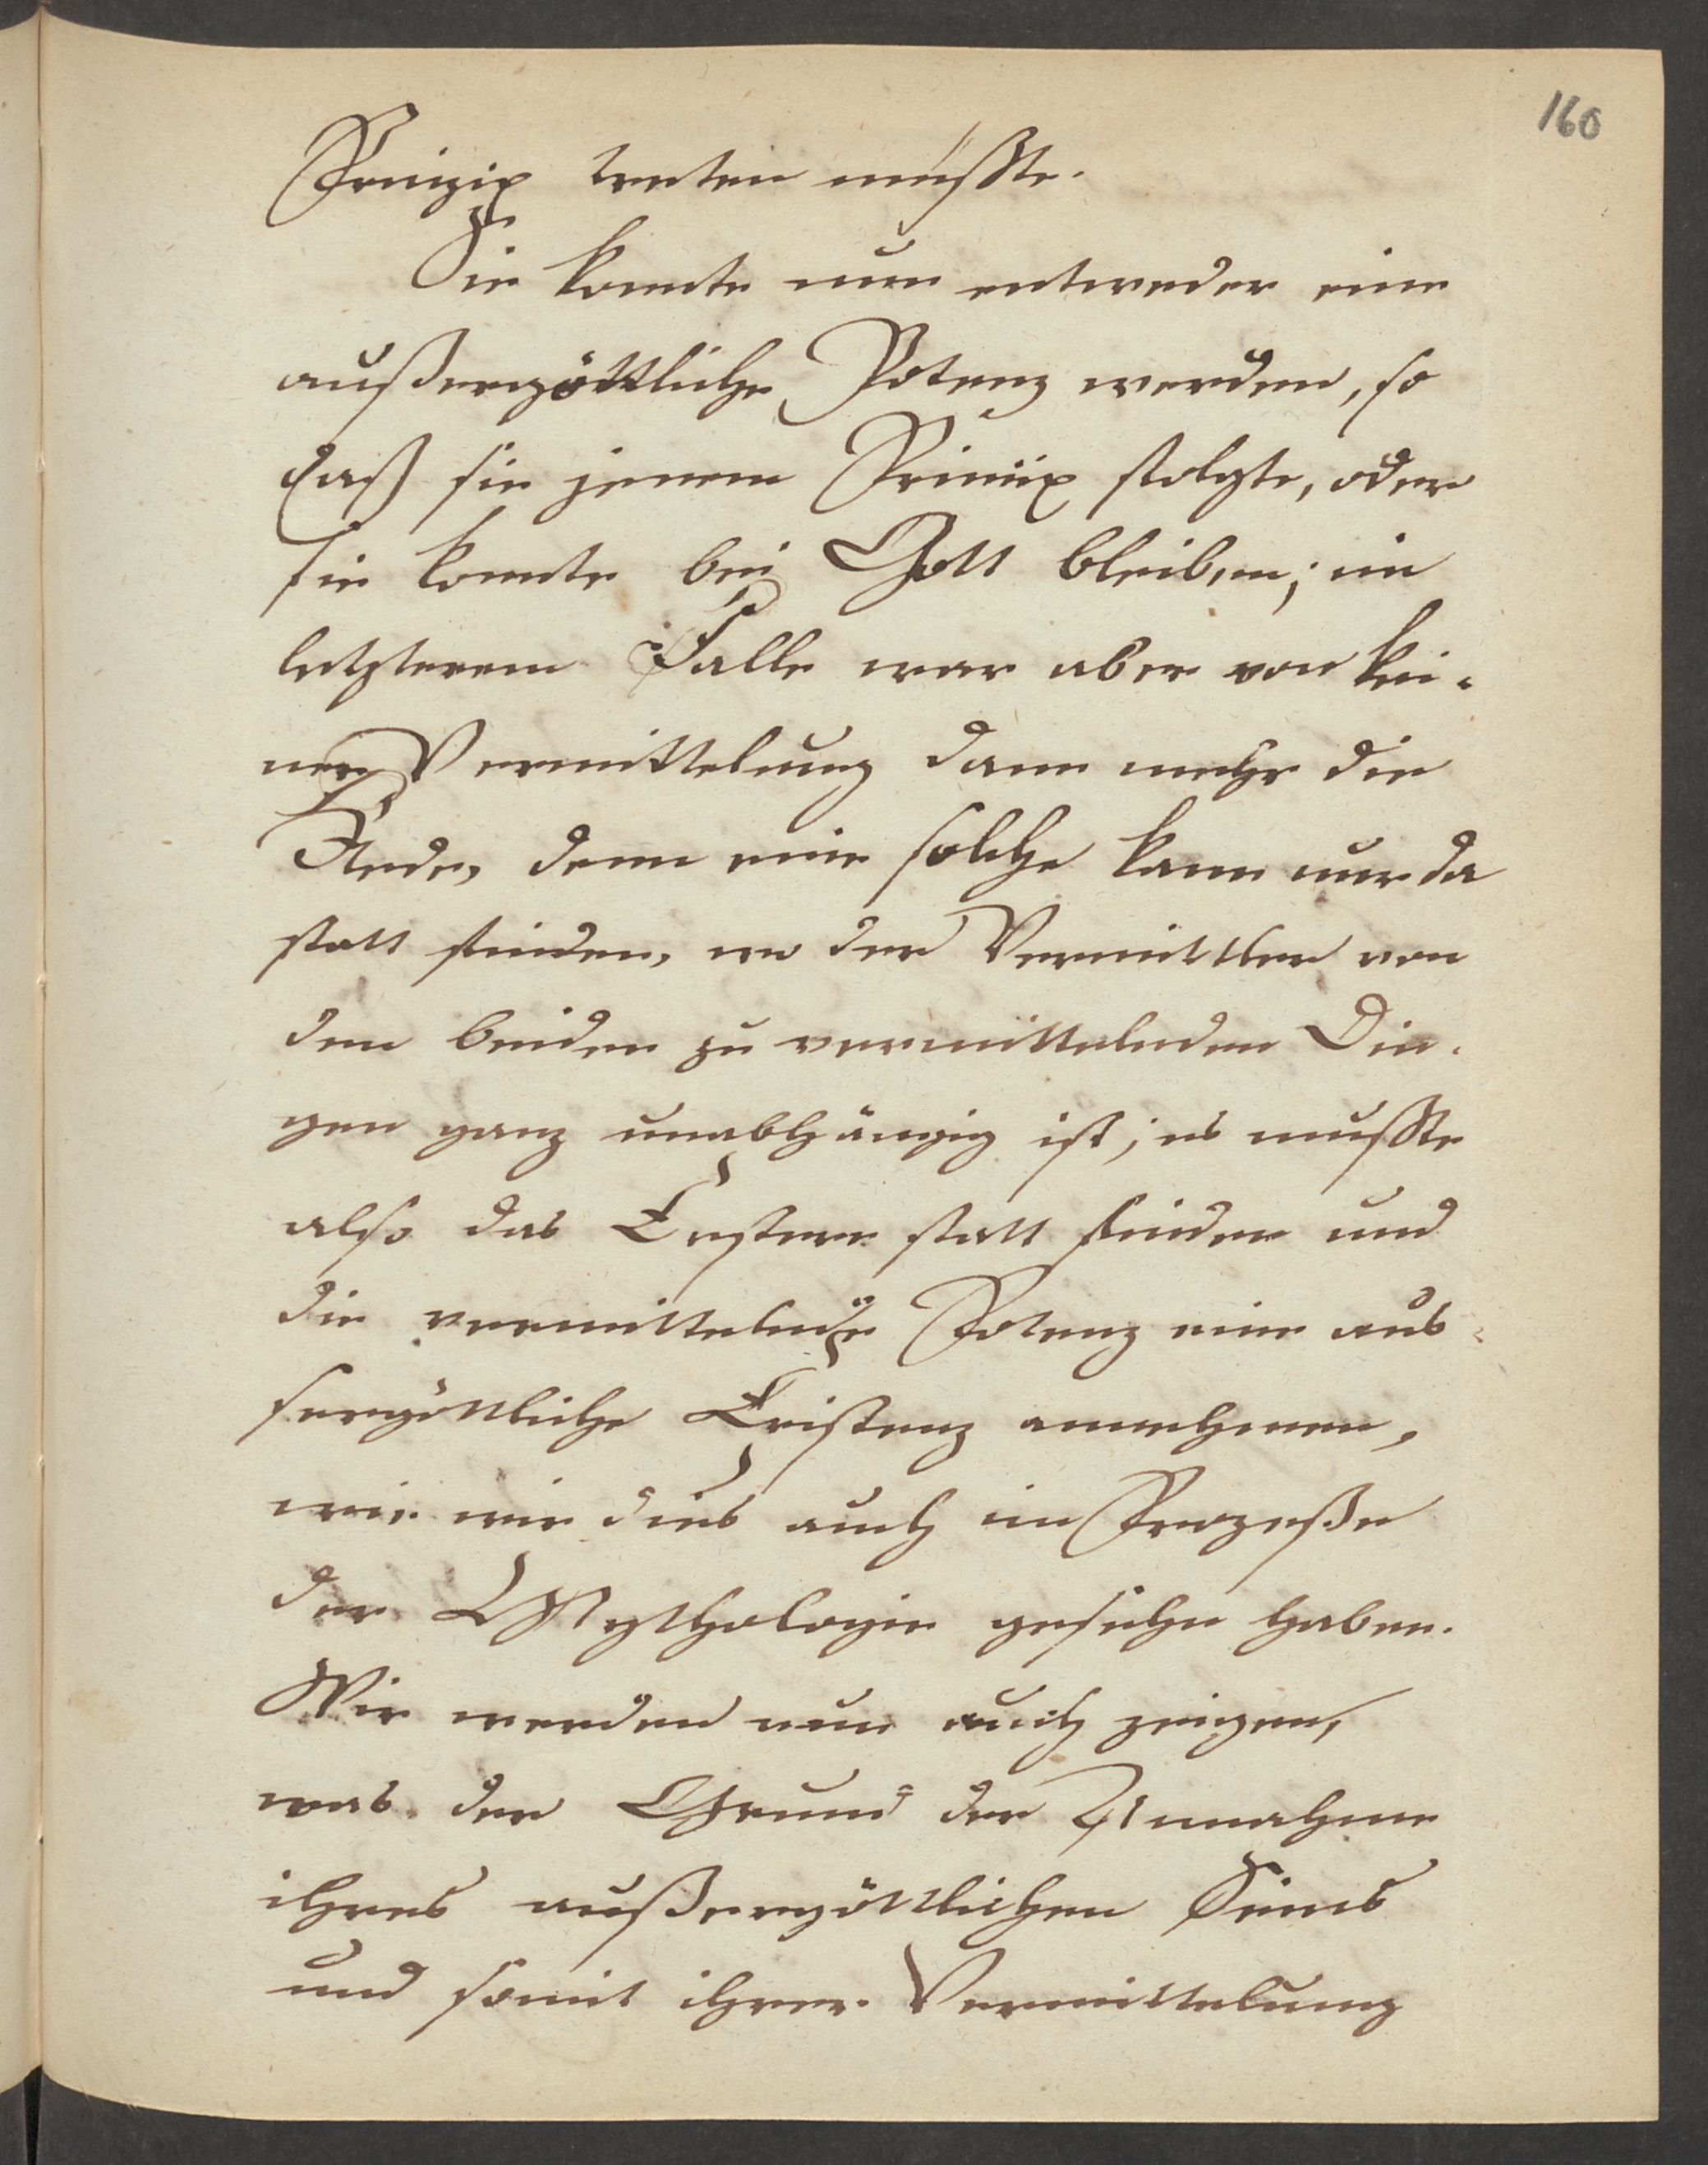 160
Prinzip treten müßte.
Sie konnte nun entweder eine
außergöttliche Potenz werden, so
daß sie jenem Prinzip folgte, oder
sie konnte bei Gott bleiben; im
letzterem Falle war aber von kei-
ner Vermittelung dann mehr die
Rede, denn eine solche kann nur da
statt finden, wo der Vermittler von
den beiden zu vermittelnden Din-
gen ganz unabhängig ist; es mußte
also das Erstere statt finden und
die vermittelnde Potenz eine aus-
sergöttliche Existenz annehmen,
wie wir dies auch im Prozeße
der Mythologie gesehen haben.
Wir werden nun auch zeigen,
was der Grund der Annahme
ihres außergöttlichen Seins
und somit ihrer Vermittelung